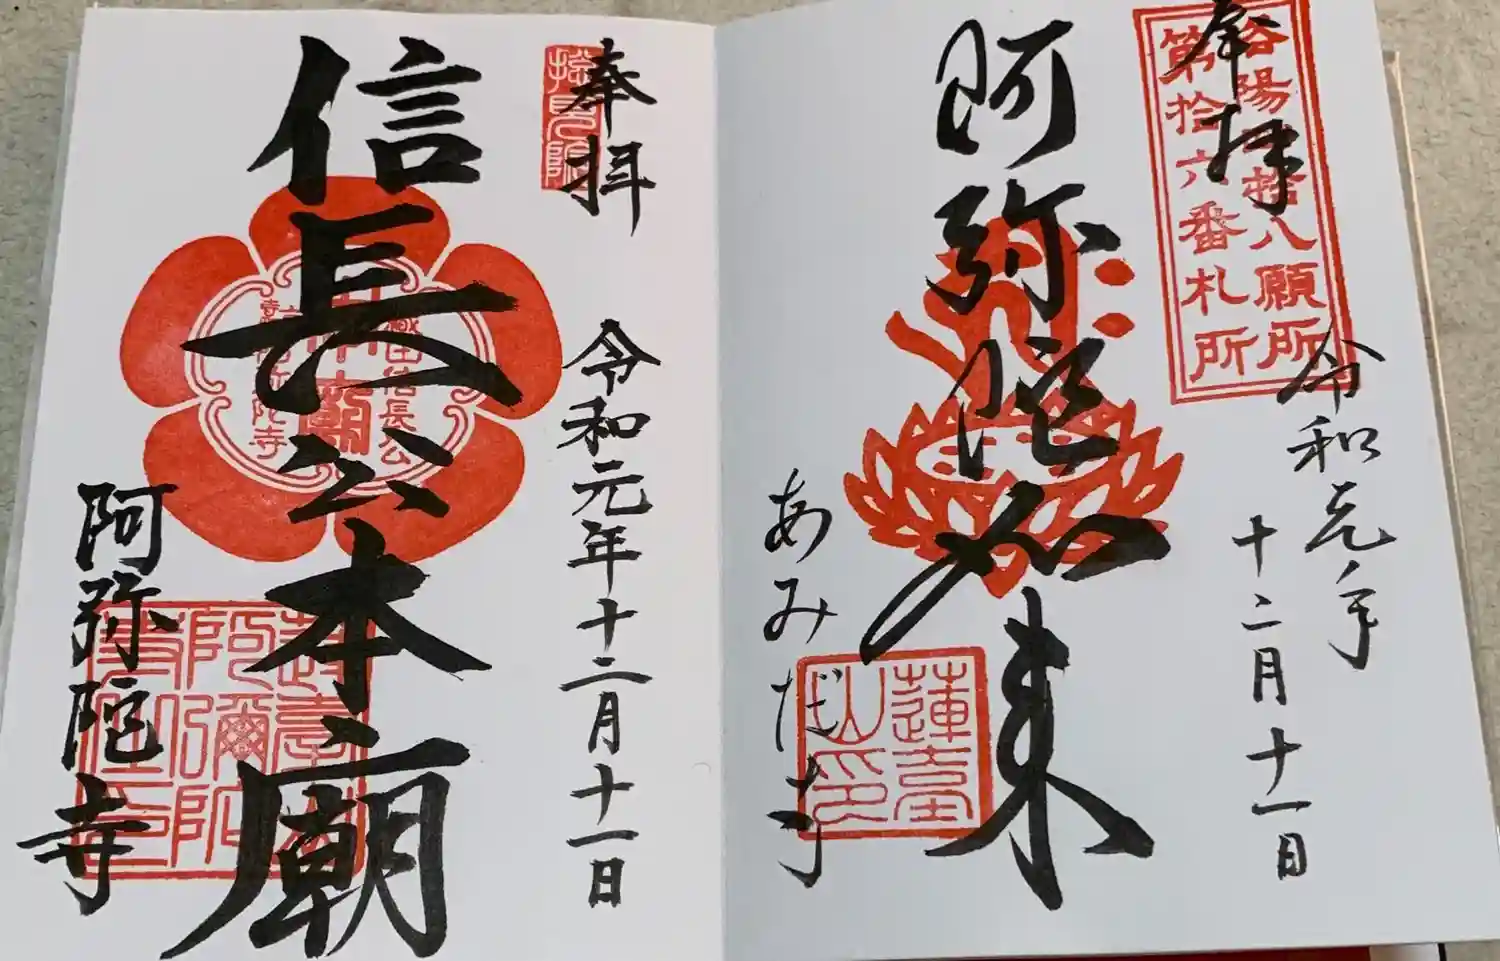 洛陽四拾八願所
第拾六番札所
奉拝
令和元年
十二月十一日
阿弥陀如来
あみだ寺
蓮臺
山印
奉拝
総見院
令和元年十二月十一日
信長公本廟
織田信長公
本廟
阿弥陀寺